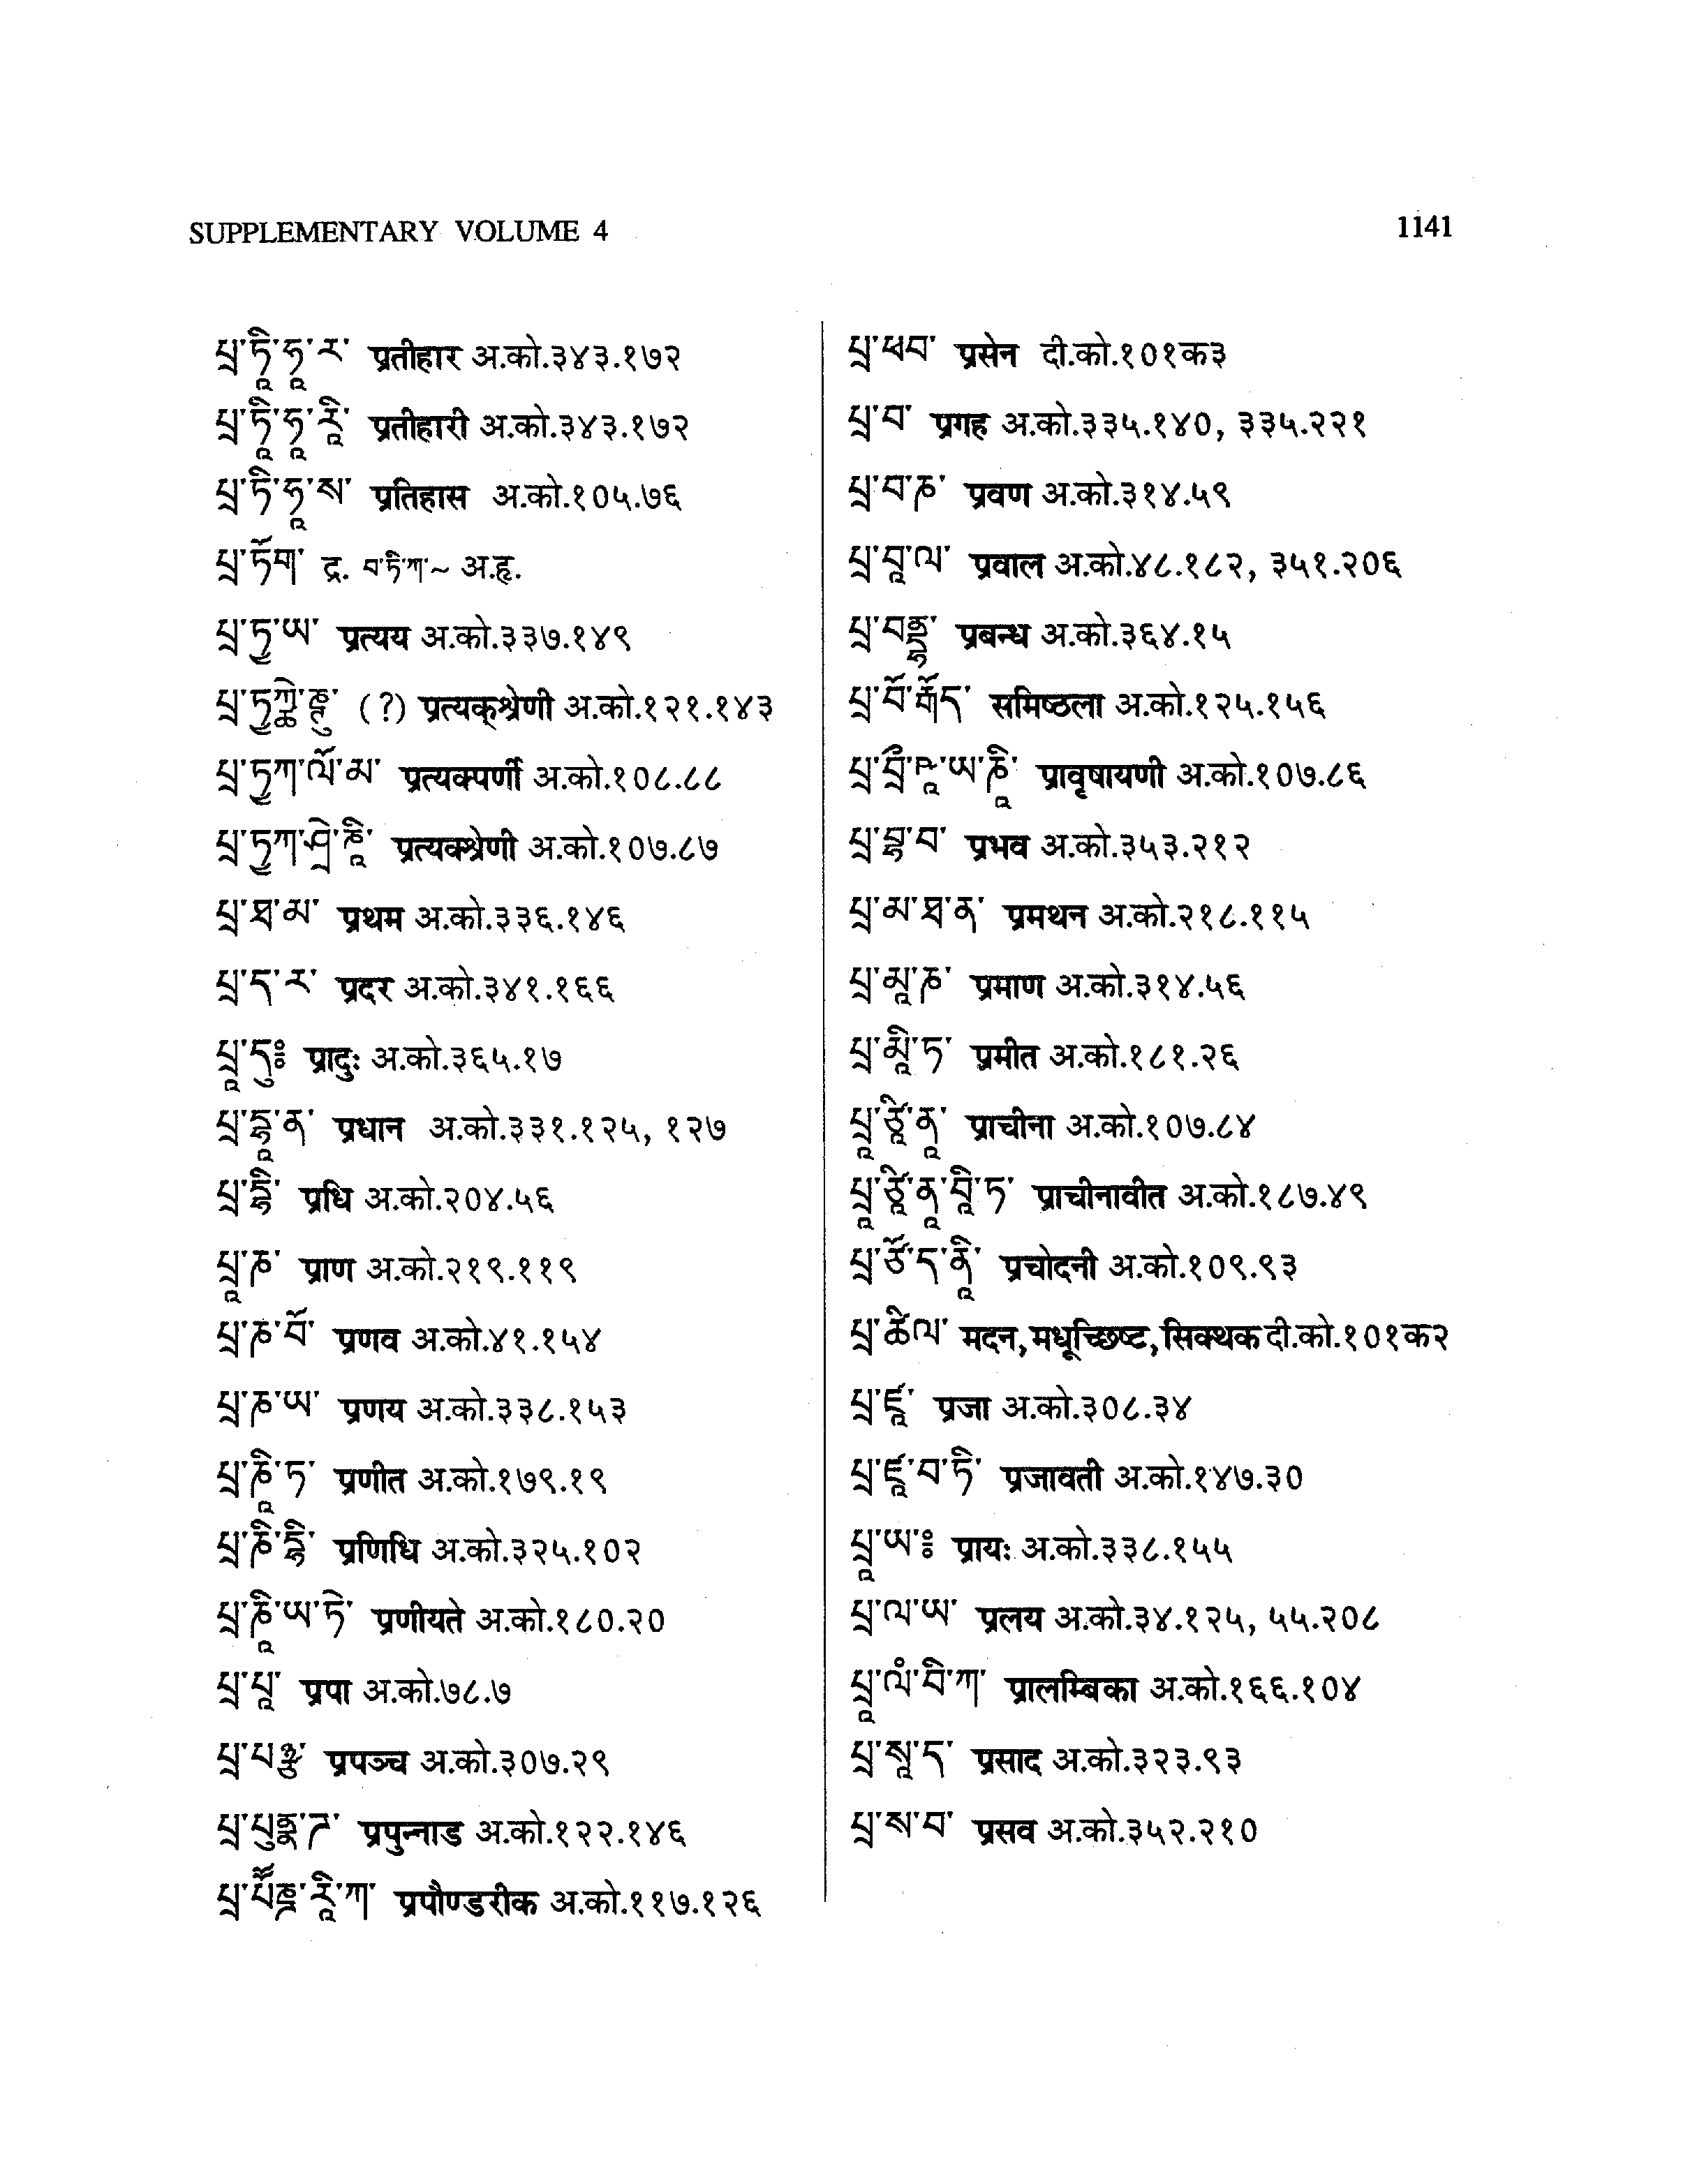 SUPPLEMENTARY VOLUME 4 1141
པྲ་ཏཱི་ཧཱ་ར་ प्रतीहार अ.को.३४३.१७२
པྲ་ཏཱི་ཧཱ་རཱི་ प्रतीहारी अ.को.३४३.१७२
པྲ་ཏི་ཧཱ་ས་ प्रतिहास अ.को.१०५.७६
པྲ་ཏོག་ द्र. བ་ཏི་ཀ་~ अ.हृ.
པྲ་ཏྱ་ཡ་ प्रत्यय अ.को.३३७.१४९
(?) प्रत्यक्‌श्रेणी अ.को.१२१.१४३
པྲ་ཏྱཀ་ལོ་མ་ प्रत्यक्पर्णी अ.को.१०८.८८
པྲ་ཏྱཀ་ཤྲེ་ཎཱི་ प्रत्यक्श्रेणी अ.को.१०७.८७
པྲ་ཐ་མ་ प्रथम अ.को.३३६.१४६
པྲ་ད་ར་ प्रदर अ.को.३४१.१६६
པྲཱ་དུཿ प्रादुः अ.को.३६५.१७
པྲ་དྷཱ་ན་ प्रधान अ.को.३३१.१२५, १२७
པྲ་དྷི་ प्रधि अ.को.२०४.५६
པྲཱ་ཎ་ प्राण अ.को.२१९.११९
པྲ་ཎ་བོ་ प्रणव अ.को.४१.१५४
པྲ་ཎ་ཡ་ प्रणय अ.को.३३८.१५३
པྲ་ཎཱི་ཏ་ प्रणीत अ.को.१७९.१९
པྲ་ཎི་དྷི་ प्रणिधि अ.को.३२५.१०२
པྲ་ཎཱི་ཡ་ཏེ་ प्रणीयते अ.को.१८०.२०
པྲ་པཱ་ प्रपा अ.को.७८.७
པྲ་པཉྩ་ प्रपञ्च अ.को.३०७.२९
པྲ་པུནྣཱ་ཌ་ प्रपुन्नाड अ.को.१२२.१४६
པྲ་པཽཎྜ་རཱི་ཀ་ प्रपौण्डरीक अ.को.११७.१२६
པྲ་ཕབ་ प्रसेन दी.को.१०१क३
པྲ་བ་ प्रगह अ.को.३३५.१४०, ३३५.२२१
པྲ་བ་ཎ་ प्रवण अ.को.३१४.५९
པྲ་བཱ་ལ་ प्रवाल अ.को.४८.१८२, ३५१.२०६
པྲ་བནྡྷ་ प्रबन्ध अ.को.३६४.१५
པྲ་བོ་རྒོད་ समिष्ठला अ.को.१२५.१५६
པྲ་བྲྀ་ཥཱ་ཡ་ཎཱི་ प्रावृषायणी अ.को.१०७.८६
པྲ་བྷ་བ་ प्रभव अ.को.३५३.२१२
པྲ་མ་ཐ་ན་ प्रमथन अ.को.२१८.११५
པྲ་མཱ་ཎ་ प्रमाण अ.को.३१४.५६
པྲ་མཱི་ཏ་ प्रमीत अ.को.१८१.२६
པྲཱ་ཙཱི་ནཱ་ प्राचीना अ.को.१०७.८४
པྲཱ་ཙཱི་ནཱ་བཱི་ཏ་ प्राचीनावीत अ.को.१८७.४९
པྲ་ཙོ་ད་ནཱི་ प्रचोदनी अ.को.१०९.९३
པྲ་ཚིལ་ मदन, मधूच्छिष्ट, सिक्थक दी.को.१०१क२
པྲ་ཛཱ་ प्रजा अ.को.३०८.३४
པྲ་ཛཱ་བ་ཏི་ प्रजावती अ.को.१४७.३०
པྲཱ་ཡ་ཿ प्रायः अ.को.३३८.१५५
པྲ་ལ་ཡ་ प्रलय अ.को.३४.१२५, ५५.२०८
པྲཱ་ལཾ་བི་ཀ་ प्रालम्बिका अ.को.१६६.१०४
པྲ་སཱ་ད་ प्रसाद अ.को.३२३.९३
པྲ་ས་བ་ प्रसव अ.को.३५२.२१०